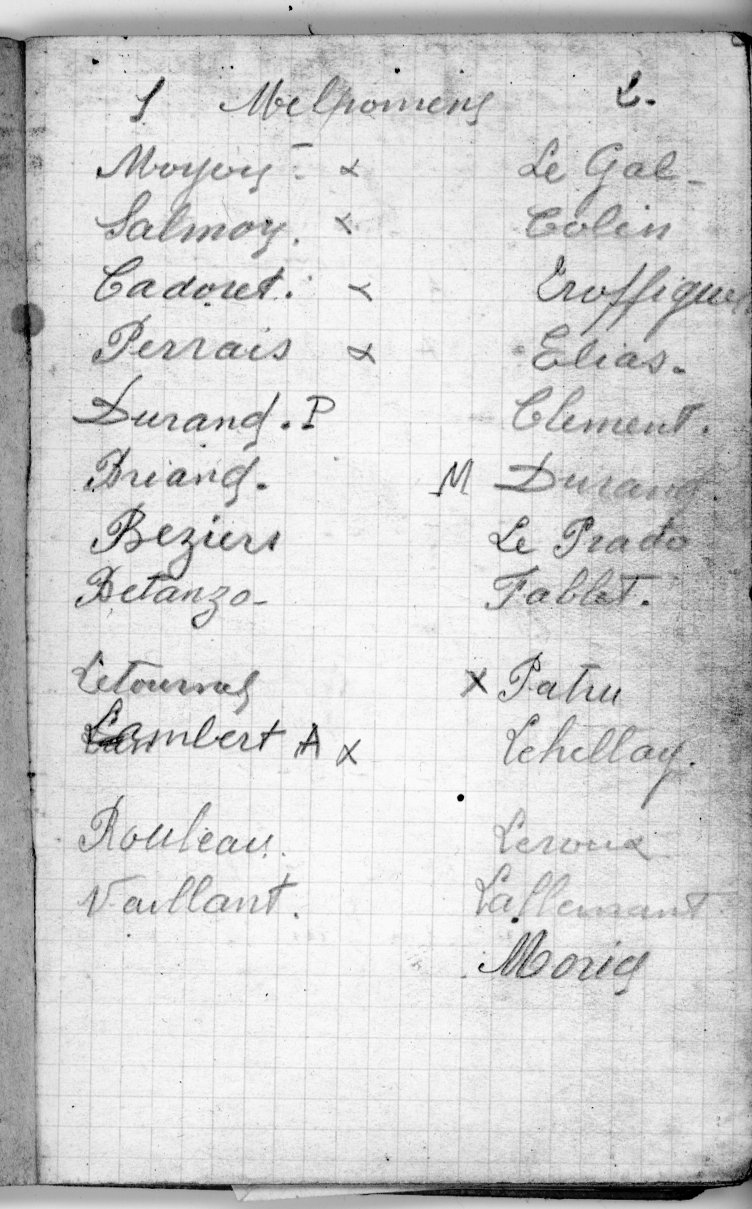 1 Melpomene 2.
Moyon - x Le Gal -
Salmon. x Colin
Cadoret. x Eroffigue
Perrais x Elias.
Durand. P Clement.
Briand. M Durand
Beziers Le Prado
Betanzo - Fablet.
Letournel x Patru
Lambert A x Lehellay.
Rouleau. Leroux
Vaillant. Lallemant
Morin